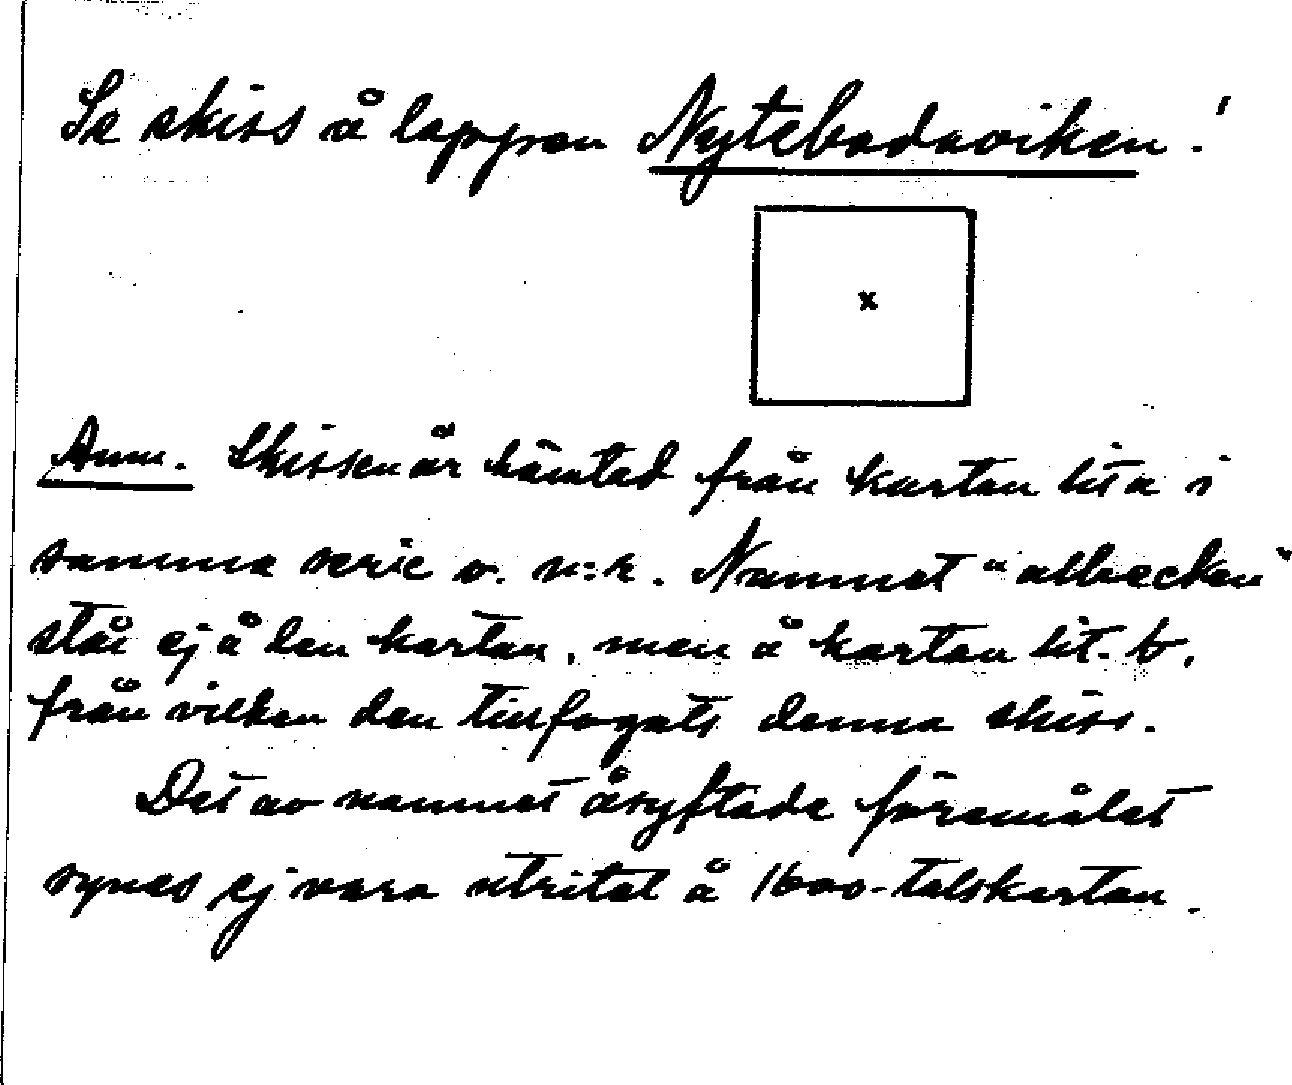 Se skiss å lappen Nytebodaviken!
x
Anm. Skissen är hämtad från kartan lit a i
samma serie o. n:r. Namnet "allbecken"
står ej å den kartan, men å kartan lit. b,
från vilken den tillfogats denna skiss.
Det av namnet åsyftade föremålet
synes ej vara utritat å 1600-talskartan.